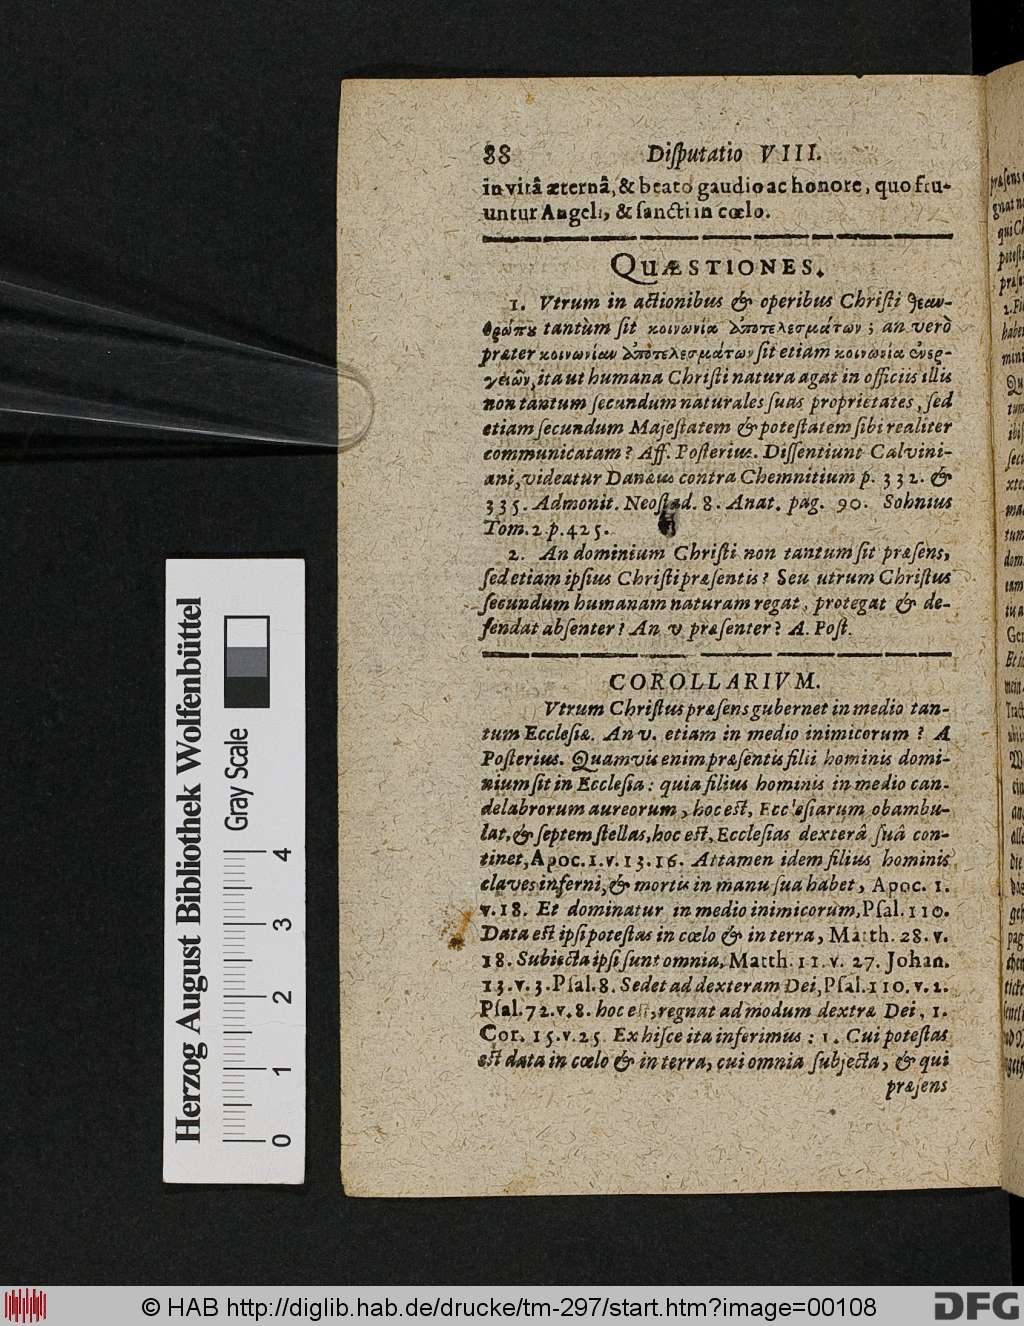 88 Diſputatio VIII.
in vitâ æternâ, & beato gaudio ac honore, quo fru-
untur Angeli, & ſancti in cœlo.
QUÆSTIONES.
1. Vtrum in actionibus & operibus Chriſti θεαν-
θρώπȣ tantùm ſit κοινωνία ἀποτελεσμάτων; an verò
præter κοινωνίαν ἀποτελεσμάτων ſit etiam κοινωνία ἐνερ-
γειῶν, ita ut humana Chriſti natura agat in officiis illis
non tantum ſecundum naturales ſuas proprietates, ſed
etiam ſecundum Majeſtatem & poteſtatem ſibi realiter
communicatam? Aff. Poſterius. Diſſentiunt Calvini-
ani, videatur Danæus contra Chemnitium p. 332. &
335. Admonit. Neoſtad. 8. Anat. pag. 90. Sohnius
Tom. 2 p. 425.
2. An dominium Chriſti non tantum ſit præſens,
ſed etiam ipſius Chriſti præſentis? Seu utrum Chriſtus
ſecundum humanam naturam regat, protegat & de-
fendat abſenter? An v præſenter? A. Poſt.
COROLLARIVM.
Vtrum Chriſtus præſens gubernet in medio tan-
tum Eccleſiæ. An v. etiam in medio inimicorum? A
Poſterius. Quamvis enim præſentis filii hominis domi-
nium ſit in Eccleſia: quia filius hominis in medio can-
delabrorum aureorum, hoc eſt, Eccleſiarum obambu-
lat, & ſeptem ſtellas, hoc eſt, Eccleſias dexterâ ſuâ con-
tinet, Apoc. 1. v. 13. 16. Attamen idem filius hominis
claves inferni, & mortis in manu ſua habet, Apoc. 1.
v. 18. Et dominatur in medio inimicorum, Pſal. 110.
Data eſt ipſi poteſtas in cœlo & in terra, Matth. 28. v.
18. Subiecta ipſi ſunt omnia, Matth. 11. v. 27. Johan.
13. v. 3. Pſal. 8. Sedet ad dexteram Dei, Pſal. 110. v. 1.
Pſal. 72. v. 8. hoc eſt, regnat ad modum dextræ Dei, 1.
Cor. 15. v. 25. Ex hiſce ita inferimus: 1. Cui poteſtas
eſt data in cœlo & in terra, cui omnia ſubjecta, & qui
præſens
Herzog August Bibliothek Wolfenbüttel
Gray Scale
0 1 2 3 4
© HAB http://diglib.hab.de/drucke/tm-297/start.htm?image=00108
DFG